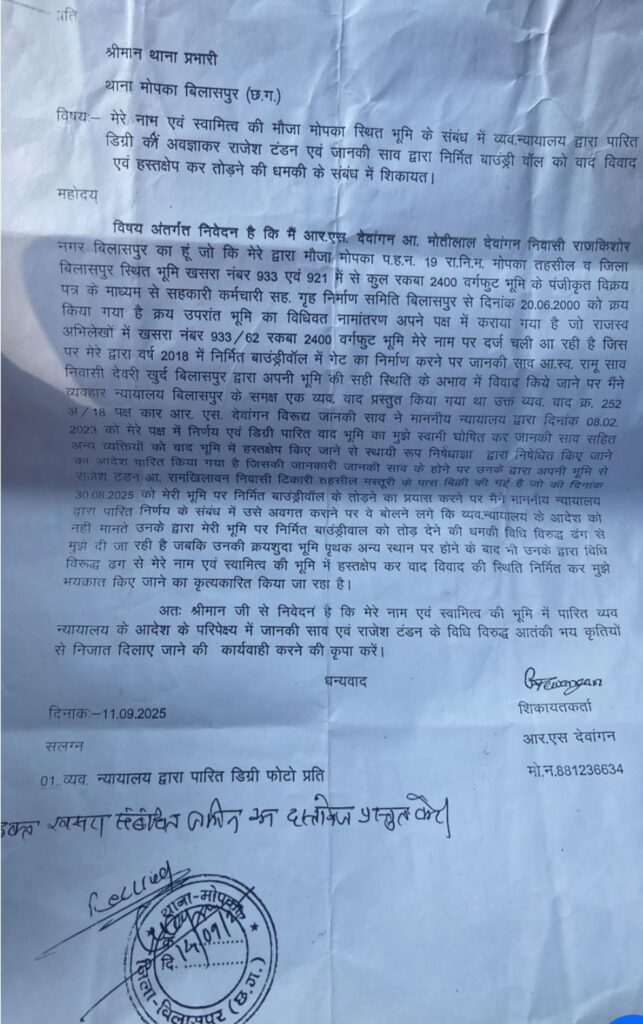 प्रति
श्रीमान थाना प्रभारी
थाना मोपका बिलासपुर (छ.ग.)
विषय:– मेरे नाम एवं स्वामित्व की मौजा मोपका स्थित भूमि के संबंध में व्यव.न्यायालय द्वारा पारित
डिग्री कीं अवज्ञाकर राजेश टंडन एवं जानकी साव द्वारा निर्मित बाउंड्री वॉल को वाद विवाद
एवं हस्तक्षेप कर तोड़ने की धमकी के संबंध में शिकायत।
महोदय
विषय अंतर्गत निवेदन है कि मैं आर.एस. देवांगन आ. मोतीलाल देवांगन निवासी राजकिशोर
नगर बिलासपुर का हूं जो कि मेरे द्वारा मौजा मोपका प.ह.न. 19 रा.नि.म. मोपका तहसील व जिला
बिलासपुर स्थित भूमि खसरा नंबर 933 एवं 921 में से कुल रकबा 2400 वर्गफुट भूमि के पंजीकृत विक्रय
पत्र के माध्यम से सहकारी कर्मचारी सह. गृह निर्माण समिति बिलासपुर से दिनांक 20.06.2000 को क्रय
किया गया है क्रय उपरांत भूमि का विधिवत नामांतरण अपने पक्ष में कराया गया है जो राजस्व
अभिलेखों में खसरा नंबर 933/62 रकबा 2400 वर्गफुट भूमि मेरे नाम पर दर्ज चली आ रही है जिस
पर मेरे द्वारा वर्ष 2018 में निर्मित बाउंड्रीवॉल में गेट का निर्माण करने पर जानकी साव आ.स्व. रामू साव
निवासी देवरी खुर्द बिलासपुर द्वारा अपनी भूमि की सही स्थिति के अभाव में विवाद किये जाने पर मैंने
व्यवहार न्यायालय बिलासपुर के समक्ष एक व्यव. वाद प्रस्तुत किया गया था उक्त व्यव. वाद क्र. 252
अ/18 पक्ष कार आर. एस. देवांगन विरूद्ध जानकी साव ने माननीय न्यायालय द्वारा दिनांक 08.02.
2023 को मेरे पक्ष में निर्णय एवं डिग्री पारित वाद भूमि का मुझे स्वामी घोषित कर जानकी साव सहित
अन्य व्यक्तियों को वाद भूमि में हस्तक्षेप किए जाने से स्थायी रूप निषेधाज्ञा द्वारा निषेधित किए जाने
का आदेश पारित किया गया है जिसकी जानकारी जानकी साव के होने पर उनके द्वारा अपनी भूमि से
राजेश टंडन आ. रामखिलावन निवासी टिकारी तहसील मस्तूरी के पास बिक्री की गई है जो की दिनांक
30.08.2025 को मेरी भूमि पर निर्मित बाउंड्रीवॉल के तोड़ने का प्रयास करने पर मैंने माननीय न्यायालय
द्वारा पारित निर्णय के संबंध में उसे अवगत कराने पर वे बोलने लगे कि व्यव.न्यायालय के आदेश को
नही मानते उनके द्वारा मेरी भूमि पर निर्मित बाउंड्रीवाल को तोड़ देने की धमकी विधि विरुद्ध ढंग से
मुझे दी जा रही है जबकि उनकी क्रयशुदा भूमि पृथक अन्य स्थान पर होने के बाद भी उनके द्वारा विधि
विरूद्ध ढग से मेरे नाम एवं स्वामित्व की भूमि में हस्तक्षेप कर वाद विवाद की स्थिति निर्मित कर मुझे
भयक्रांत किए जाने का कृत्यकारित किया जा रहा है।
अतः श्रीमान जी से निवेदन है कि मेरे नाम एवं स्वामित्व की भूमि में पारित व्यव
न्यायालय के आदेश के परिपेक्ष्य में जानकी साव एवं राजेश टंडन के विधि विरुद्ध आतंकी भय कृतियों
से निजात दिलाए जाने की कार्यवाही करने की कृपा करें।
धन्यवाद
दिनांक:–11.09.2025
शिकायतकर्ता
सलग्न
आर.एस देवांगन
01..व्यव. न्यायालय द्वारा पारित डिग्री फोटो प्रति
मो.न.881236634
उक्त खसरा संबंधित जमीन का दस्तावेज प्रस्तुत करें।
थाना-मोपका
दि.
जिला-बिलासपुर (छ.ग.)